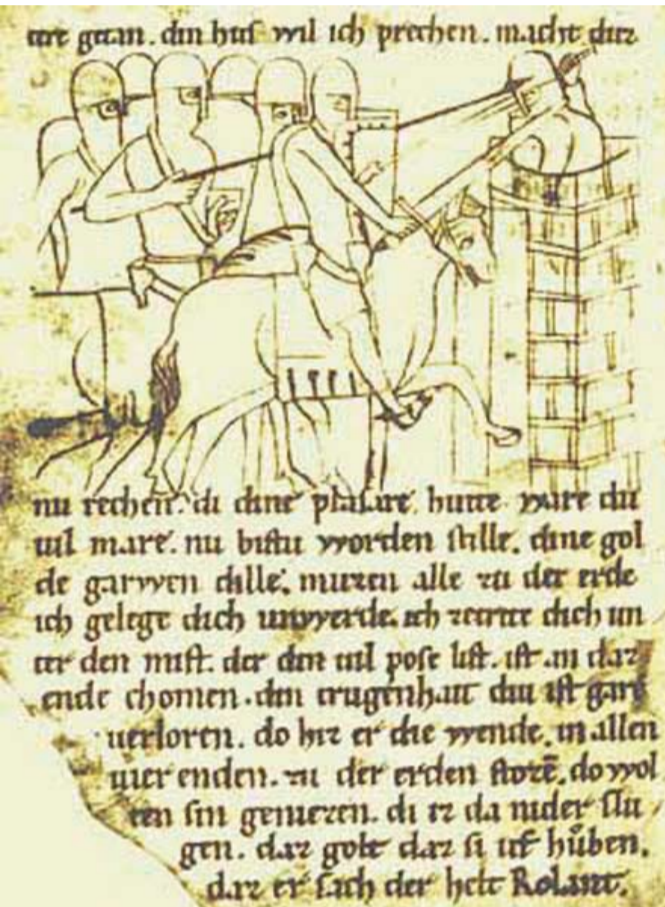 getan. din hus wil ich prechen. macht duz
nu rechen. di dine hute ware du
uil mare. nu bistu worden stille. dine gol
de garwen dille. muzen alle zu der erde
ich gelege dich unwerde. ich zetrite dich un
ter den mist. der din uil pose list. ist an daz
ende chomen. din trugenhait diu ist gare
uerloren. do hiz er die wende. in allen
uier enden. zu der erden storē. do wol
ten sin geniezen. di iz da nider slu
gen. daz golt daz si uf hůben.
daz er sach der helt Rolant.